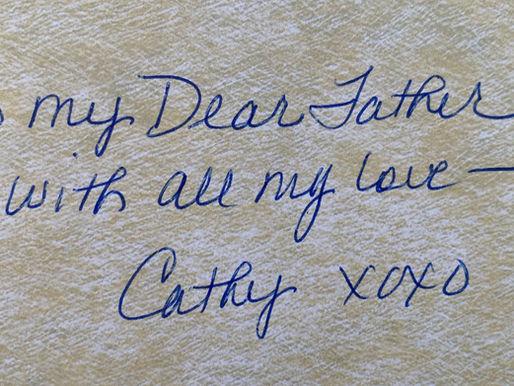 my Dear Father
with all my love —
Cathy xoxo